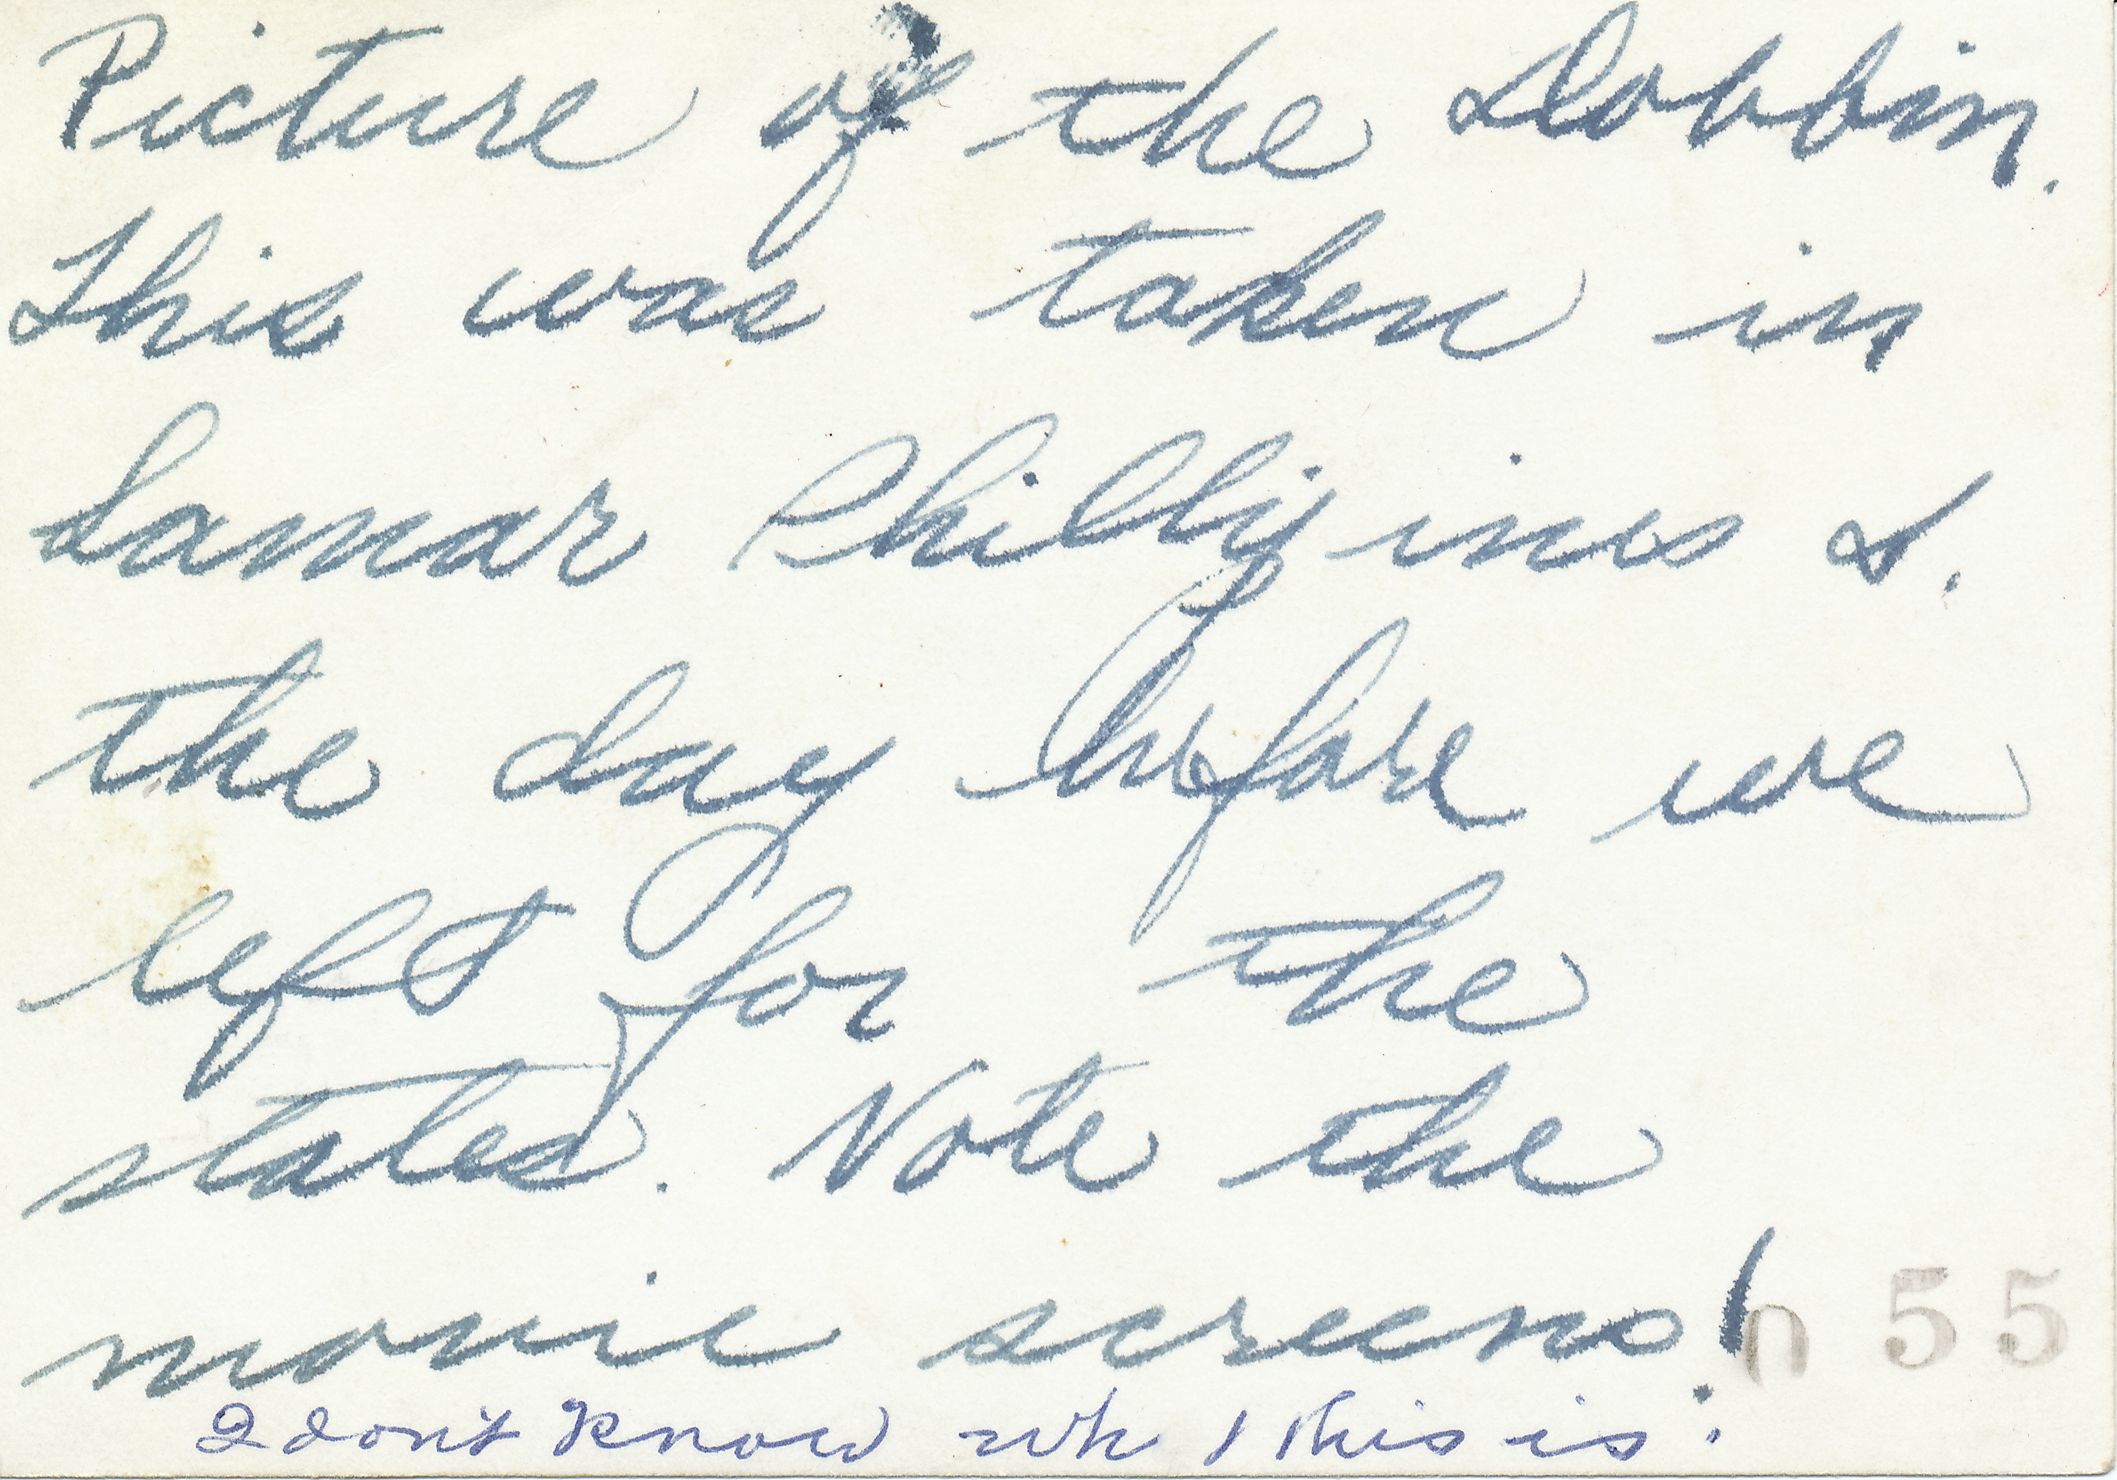 Picture of the Dobbin.
This was taken in
Samar Phillipines S.
the day before we
left for the
states. Note the
movie screens!
055
I don't know wh this is.